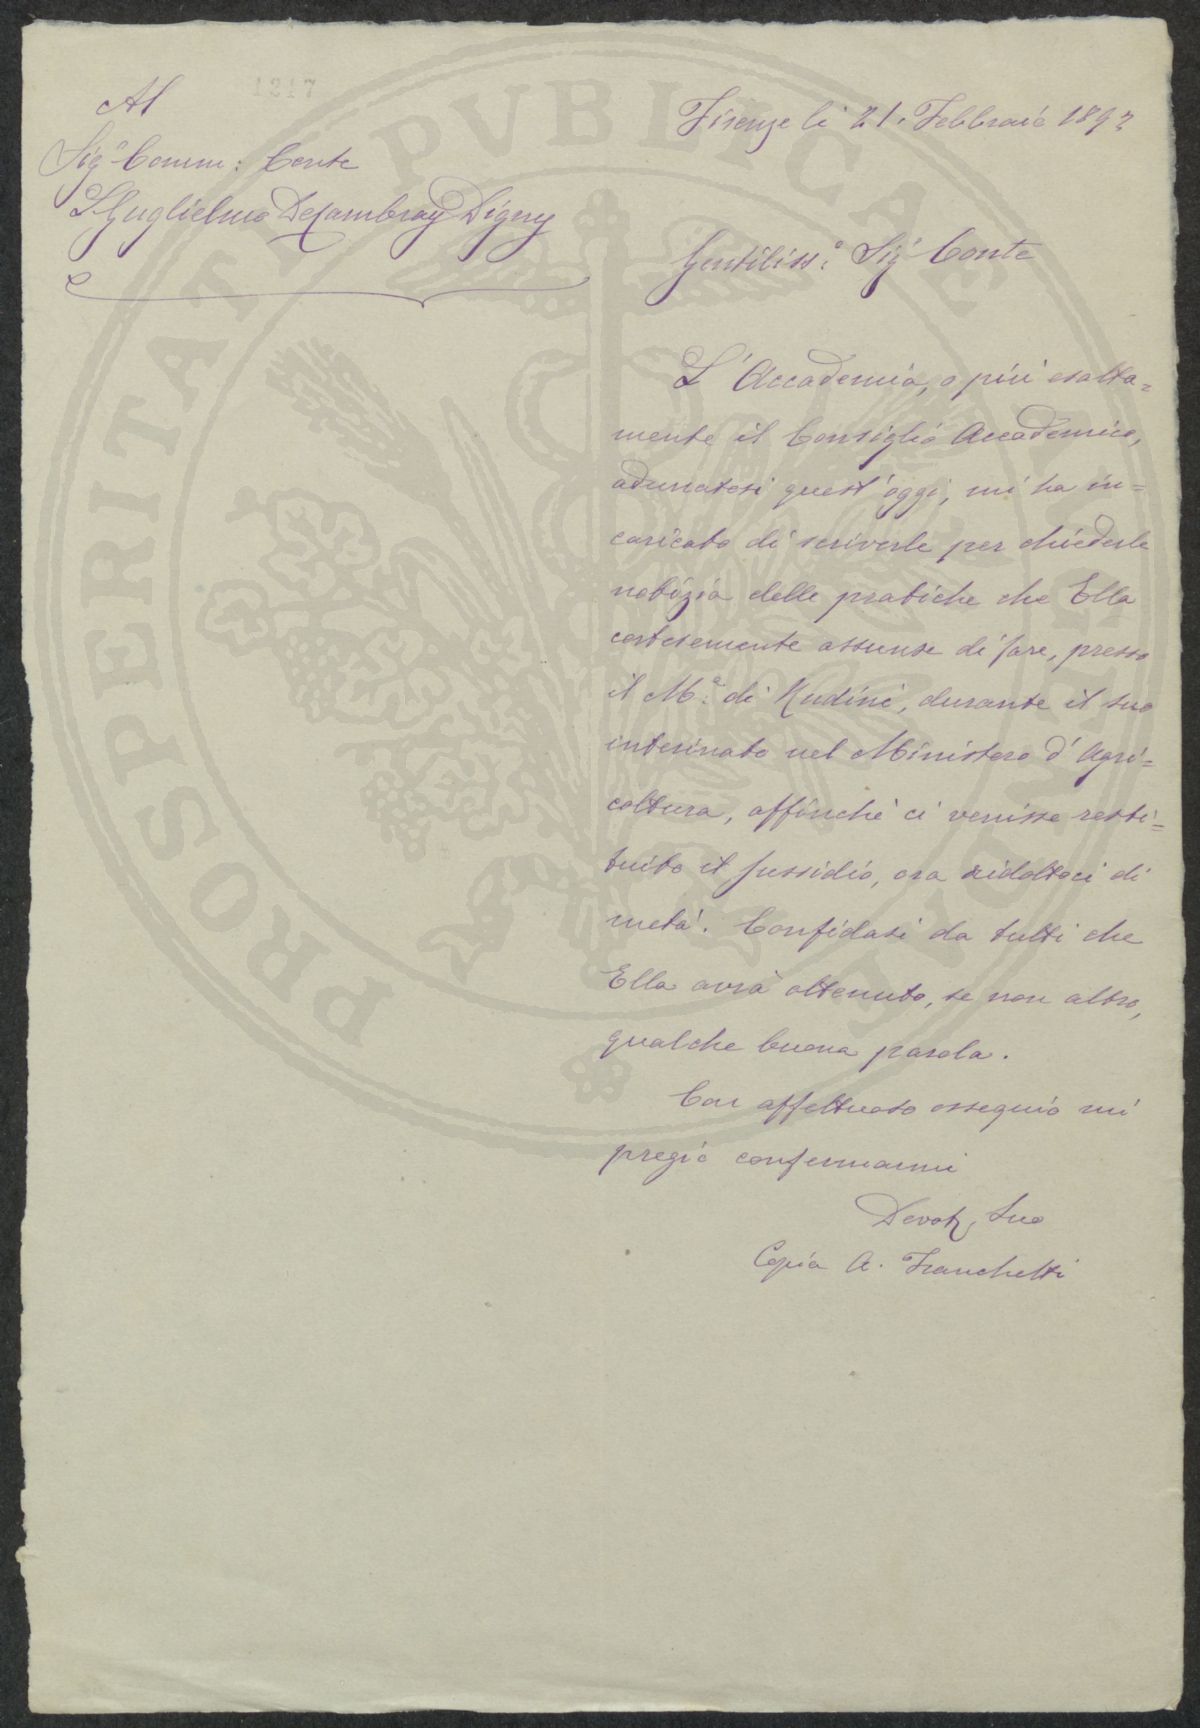 1217
Al
Sig.r Comm: Conte
Guglielmo De Cambray Digny
Firenze li 21. Febbraio 1892
Gentiliss.o Sig.r Conte
L'Accademia, o più esatta=
mente il Consiglio Accademico,
adunatosi quest'oggi, mi ha in=
caricato di scriverle per chiederle
notizia delle pratiche che Ella
cortesemente assunse di fare, presso
il M.e di Rudinì, durante il suo
interinato nel Ministero d'Agri=
coltura, affinchè ci venisse resti=
tuito il sussidio, ora ridottoci di
metà. Confidasi da tutti che
Ella avrà ottenuto, se non altro,
qualche buona parola.
Con affettuoso ossequio mi
pregio confermarmi
Devot. Suo
Copia A. Franchetti
PROSPERITATI PVBLICAE